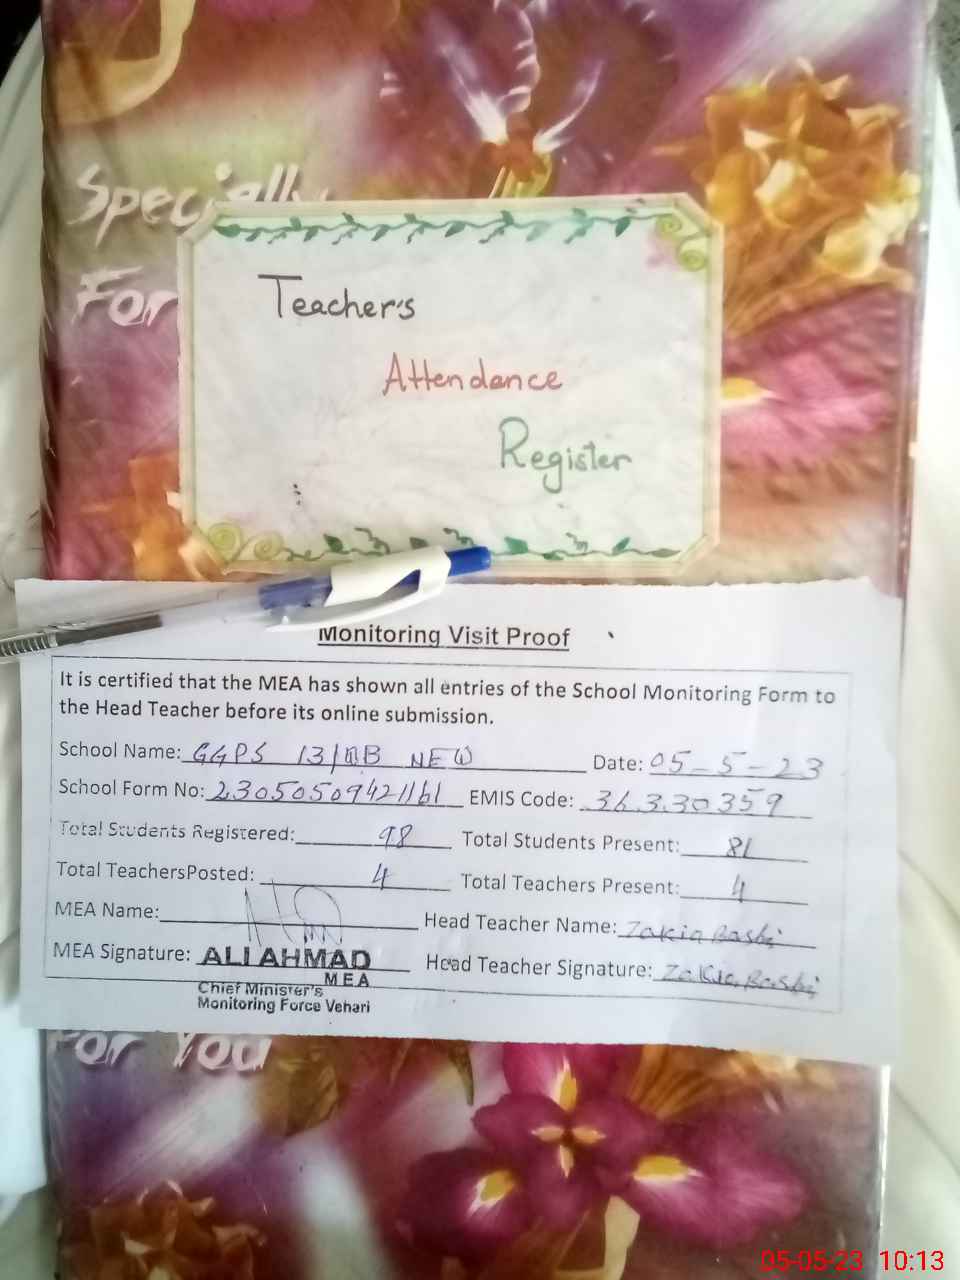 Specially
For
Teacher's
Attendance
Register
Monitoring Visit Proof
It is certified that the MEA has shown all entries of the School Monitoring Form to
the Head Teacher before its online submission.
School Name: GGPS 13/WB NEW Date: 05-5-23
School Form No: 23050509421161 EMIS Code: 36330359
Total Students Registered: 98 Total Students Present: 81
Total TeachersPosted: 4 Total Teachers Present: 4
MEA Name: Head Teacher Name: Zakia
MEA Signature: ALI AHMAD Head Teacher Signature: Zakia
MEA
Chief Minister's
Monitoring Force Vehari
For You
05-05-23 10:13